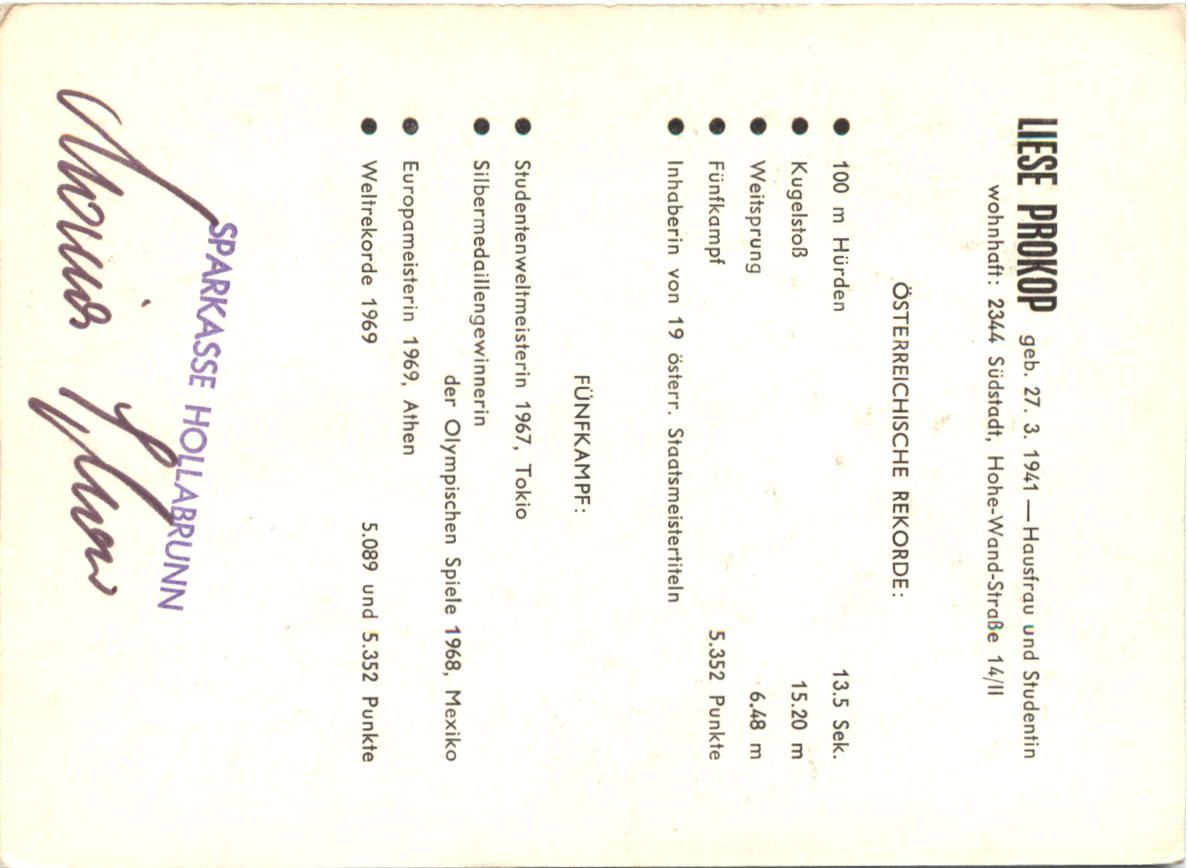 LIESE PROKOP geb. 27. 3. 1941 — Hausfrau und Studentin
wohnhaft: 2344 Südstadt, Hohe-Wand-Straße 14/II
ÖSTERREICHISCHE REKORDE:
● 100 m Hürden 13.5 Sek.
● Kugelstoß 15.20 m
● Weitsprung 6.48 m
● Fünfkampf 5.352 Punkte
● Inhaberin von 19 österr. Staatsmeistertiteln
FÜNFKAMPF:
● Studentenweltmeisterin 1967, Tokio
● Silbermedaillengewinnerin
der Olympischen Spiele 1968, Mexiko
● Europameisterin 1969, Athen
● Weltrekorde 1969 5.089 und 5.352 Punkte
SPARKASSE HOLLABRUNN